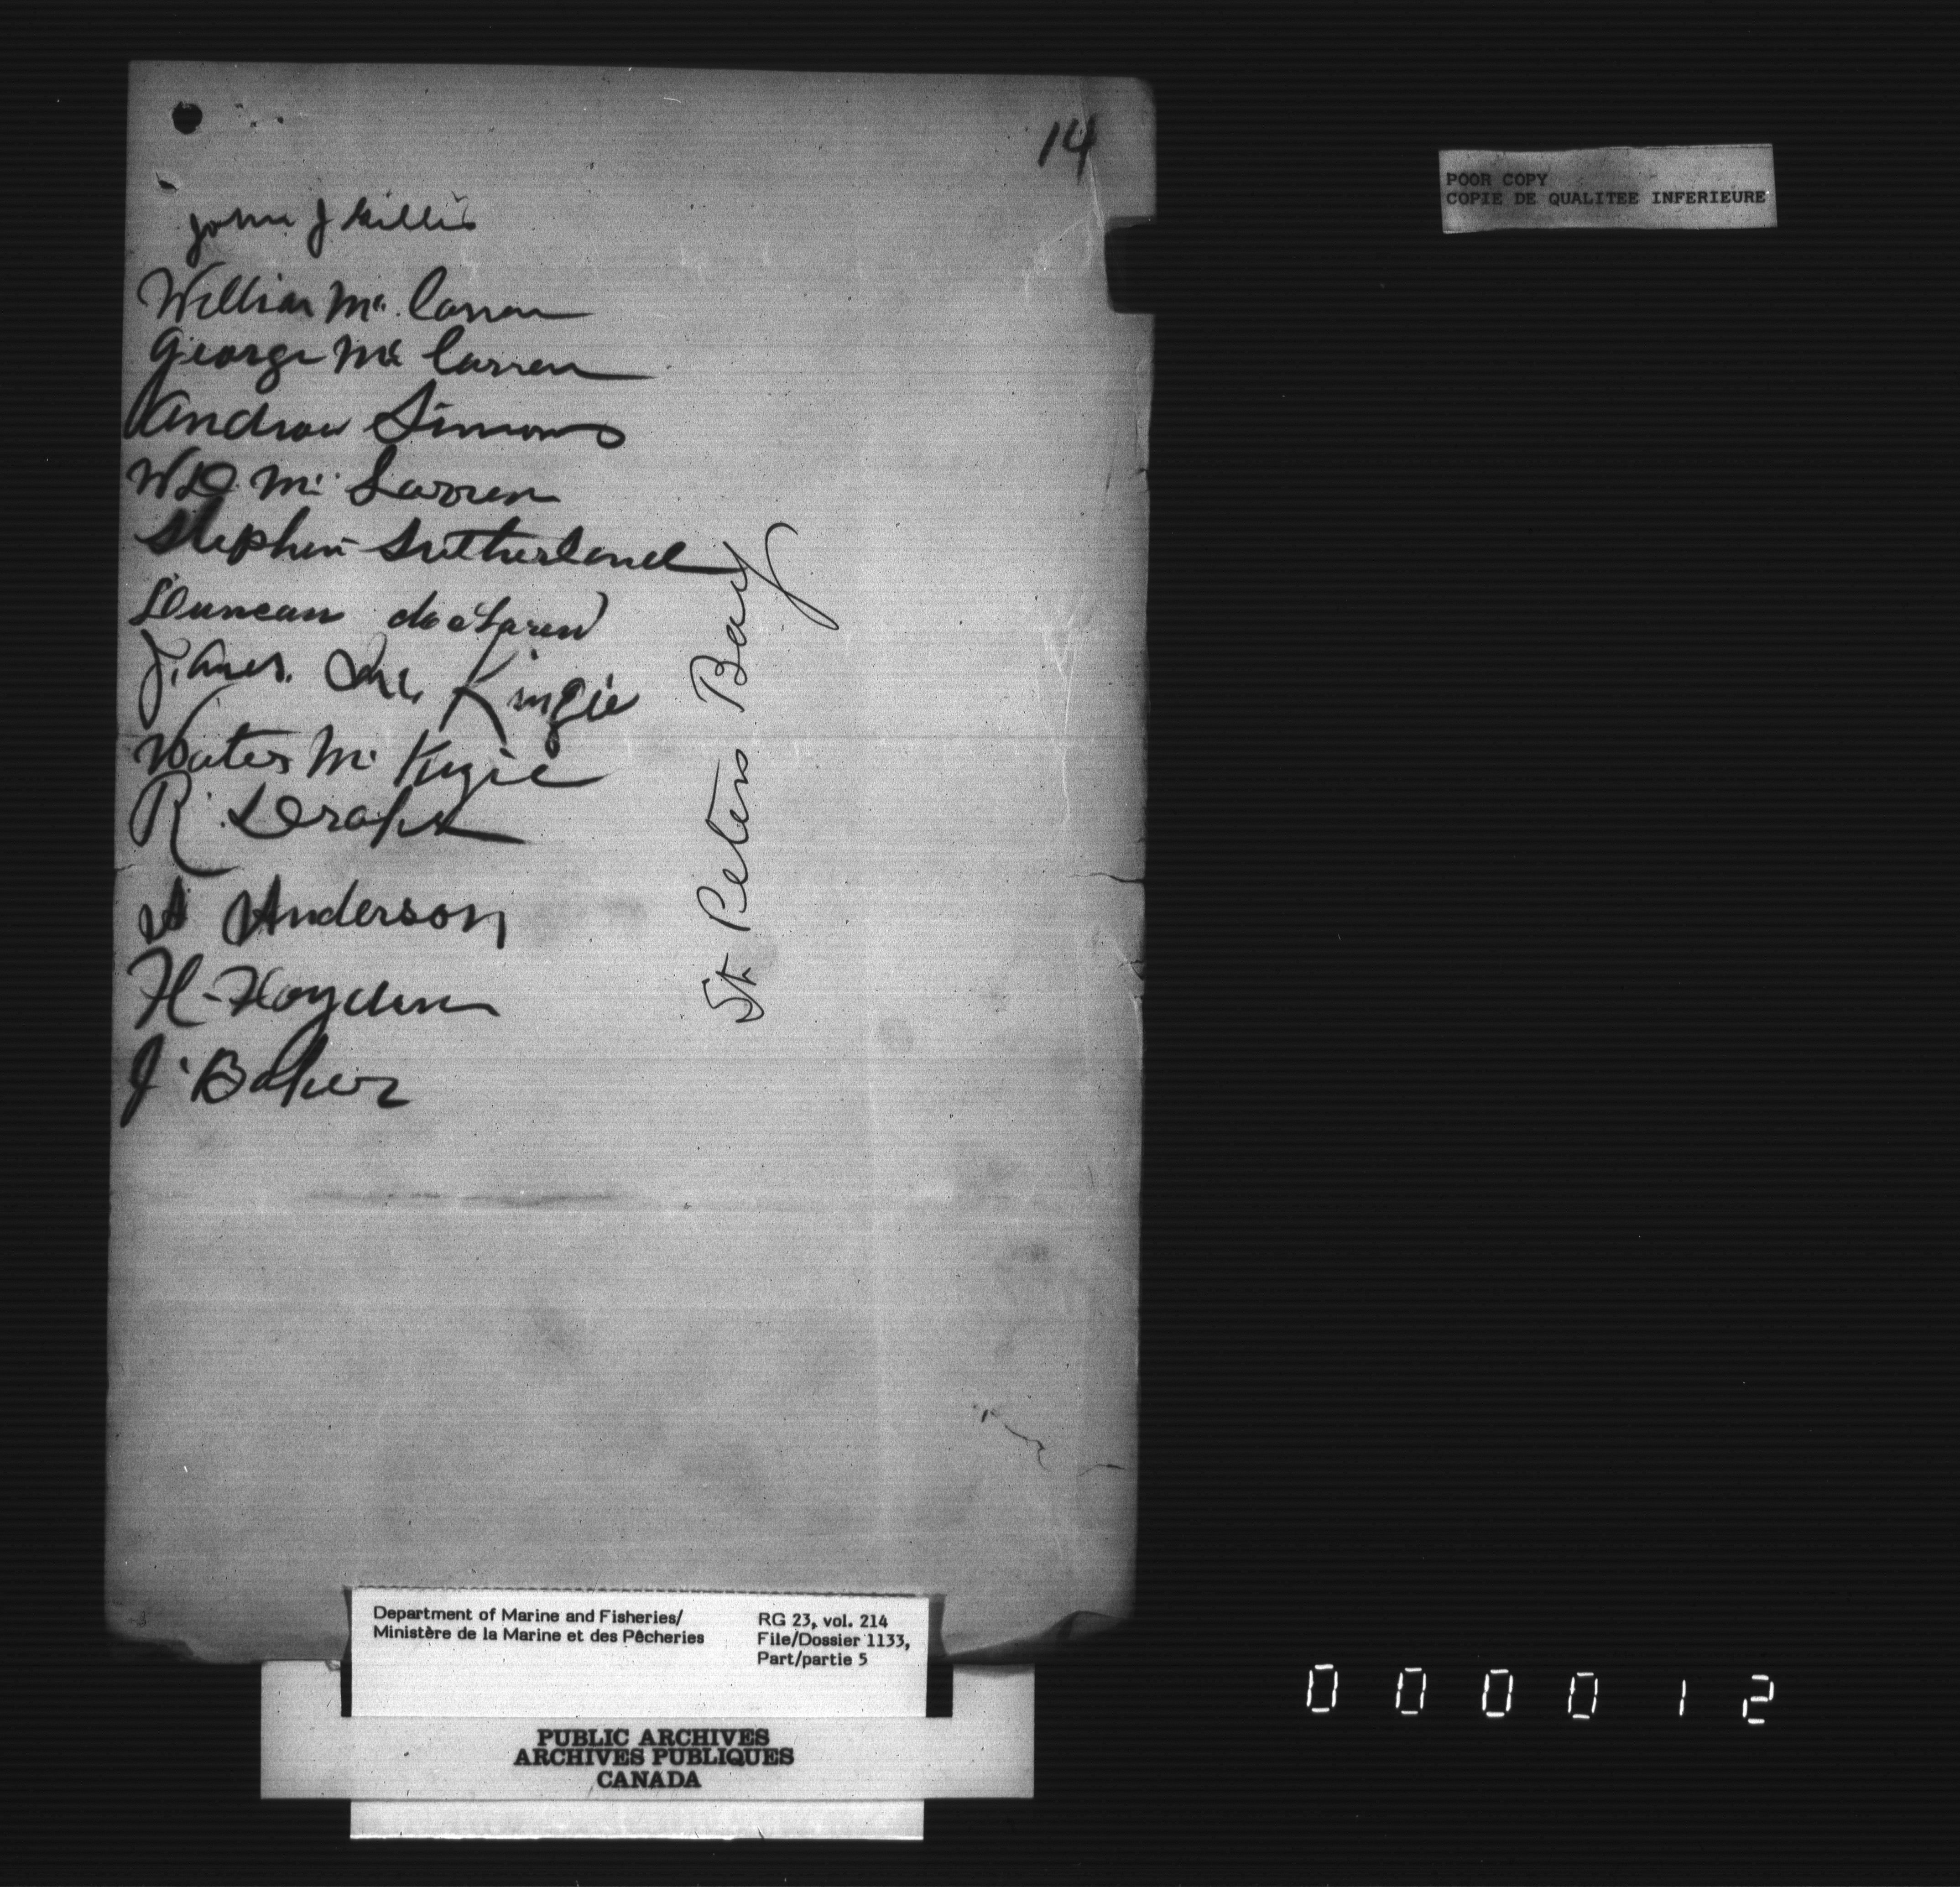 14
POOR COPY
COPIE DE QUALITEE INFERIEURE
John J Killis
William Mc. Carren
George Mc Carren
Andrew Simons
WD Mc Larren
Stephen Sutherland
Duncan McLaren
James Mc Kinzie
Water Mc Kizie
R. Draper
A Anderson
H. Hayden
J. Baker
St. Peters Bay
Department of Marine and Fisheries/
Ministère de la Marine et des Pêcheries
RG 23, vol. 214
File/Dossier 1133,
Part/partie 5
PUBLIC ARCHIVES
ARCHIVES PUBLIQUES
CANADA
000012